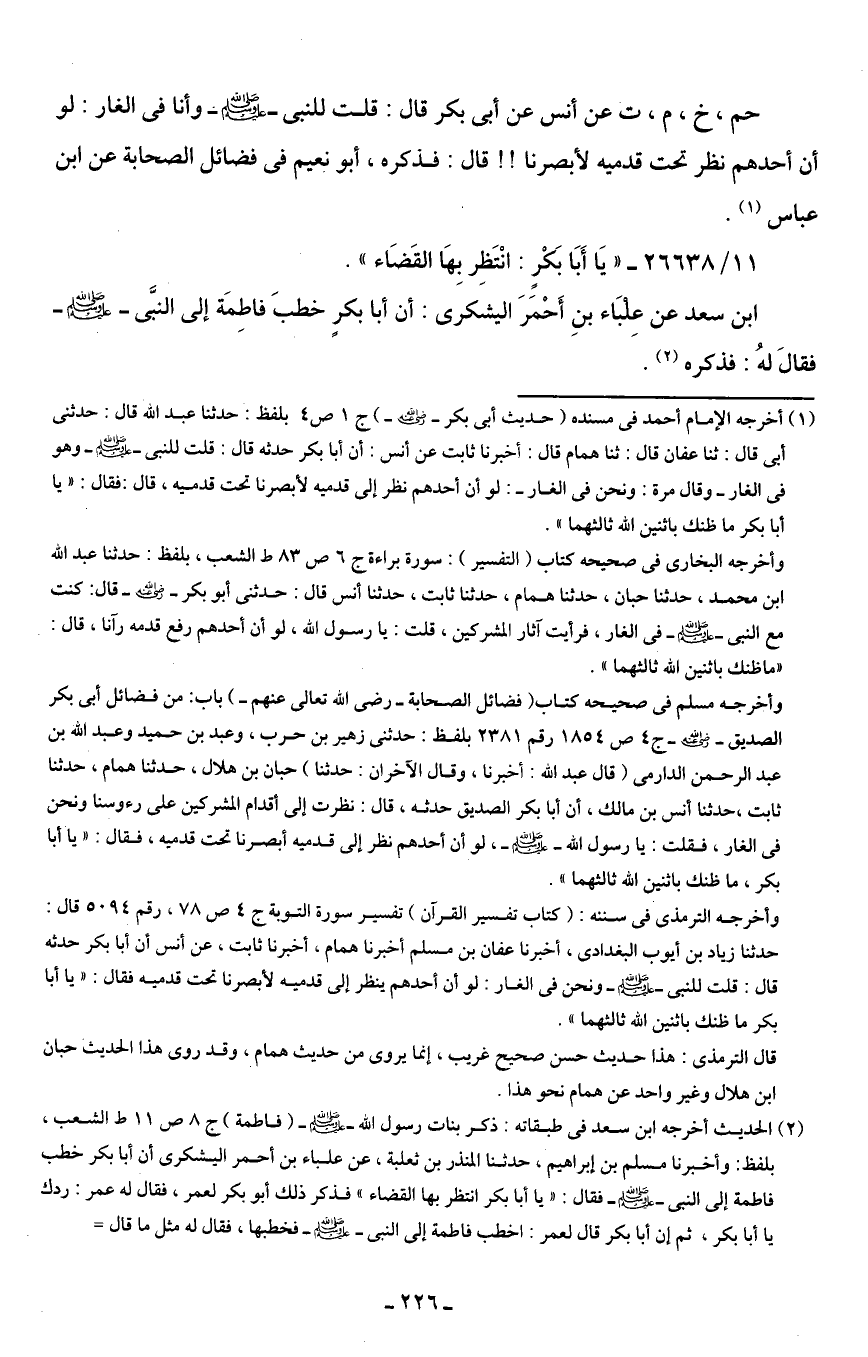 حم ، خ ، م ، ت عن أنس عن أبى بكر قال : قلت للنبى - ﷺ - وأنا فى الغار : لو
أن أحدهم نظر تحت قدميه لأبصرنا !! قال : فذكره ، أبو نعيم فى فضائل الصحابة عن ابن
عباس (١) .
١١/ ٢٦٦٣٨ - « يَا أَبَا بَكْرٍ : انْتَظِرِ بِهَا القَضَاء » .
ابن سعد عن عِلْبَاء بنِ أَحْمَرَ اليشكرى : أن أبا بكرٍ خطبَ فاطِمَة إلى النبَّى - ﷺ -
فقالَ لهُ : فذكره (٢) .
(١) أخرجه الإمام أحمد فى مسنده ( حديث أبى بكر - رضي الله عنه - ) ج ١ ص٤ بلفظ : حدثنا عبد الله قال : حدثنى
أبى قال : ثنا عفان قال : ثنا همام قال : أخبرنا ثابت عن أنس : أن أبا بكر حدثه قال : قلت للنبى - ﷺ - وهو
فى الغار - وقال مرة : ونحن فى الغار - : لو أن أحدهم نظر إلى قدميه لأبصرنا تحت قدميه ، قال :فقال : « يا
أبا بكر ما ظنك باثنين الله ثالثهما » .
وأخرجه البخارى فى صحيحه كتاب ( التفسير ) : سورة براءة ج ٦ ص ٨٣ ط الشعب ، بلفظ : حدثنا عبد الله
ابن محمد ، حدثنا حبان ، حدثنا همام ، حدثنا ثابت ، حدثنا أنس قال : حدثنى أبو بكر - رضي الله عنه - قال: كنت
مع النبى - ﷺ - فى الغار ، فرأيت آثار المشركين ، قلت : يا رسول الله ، لو أن أحدهم رفع قدمه رآنا ، قال :
«ماظنك باثنين الله ثالثهما » .
وأخرجه مسلم فى صحيحه كتاب( فضائل الصحابة - رضى الله تعالى عنهم - ) باب: من فضائل أبى بكر
الصديق - رضي الله عنه - ج٤ ص ١٨٥٤ رقم ٢٣٨١ بلفظ : حدثنى زهير بن حرب ، وعبد بن حميد وعبد الله بن
عبد الرحمن الدارمى ( قال عبد الله : أخبرنا ، وقال الآخران : حدثنا ) حبان بن هلال ، حدثنا همام ، حدثنا
ثابت ،حدثنا أنس بن مالك ، أن أبا بكر الصديق حدثه ، قال : نظرت إلى أقدام المشركين على رءوسنا ونحن
فى الغار ، فقلت : يا رسول الله - ﷺ - ، لو أن أحدهم نظر إلى قدميه أبصرنا تحت قدميه ، فقال : « يا أبا
بكر ، ما ظنك باثنين الله ثالثهما » .
وأخرجه الترمذى فى سننه : ( كتاب تفسير القرآن ) تفسير سورة التوبة ج ٤ ص ٧٨ ، رقم ٥٠٩٤ قال :
حدثنا زياد بن أيوب البغدادى ، أخبرنا عفان بن مسلم أخبرنا همام ، أخبرنا ثابت ، عن أنس أن أبا بكر حدثه
قال : قلت للنبى - ﷺ - ونحن فى الغار : لو أن أحدهم ينظر إلى قدميه لأبصرنا تحت قدميه فقال : « يا أبا
بكر ما ظنك باثنين الله ثالثهما » .
قال الترمذى : هذا حديث حسن صحيح غريب ، إنما يروى من حديث همام ، وقد روى هذا الحديث حبان
ابن هلال وغير واحد عن همام نحو هذا .
(٢) الحديث أخرجه ابن سعد فى طبقاته : ذكر بنات رسول الله - ﷺ - ( فاطمة ) ج ٨ ص ١١ ط الشعب ،
بلفظ: وأخبرنا مسلم بن إبراهيم ، حدثنا المنذر بن ثعلبة ، عن علباء بن أحمر اليشكرى أن أبا بكر خطب
فاطمة إلى النبى - ﷺ - فقال : « يا أبا بكر انتظر بها القضاء » فذكر ذلك أبو بكر لعمر ، فقال له عمر : ردك
يا أبا بكر ، ثم إن أبا بكر قال لعمر : اخطب فاطمة إلى النبى - ﷺ - فخطبها ، فقال له مثل ما قال =
- ٢٢٦ -